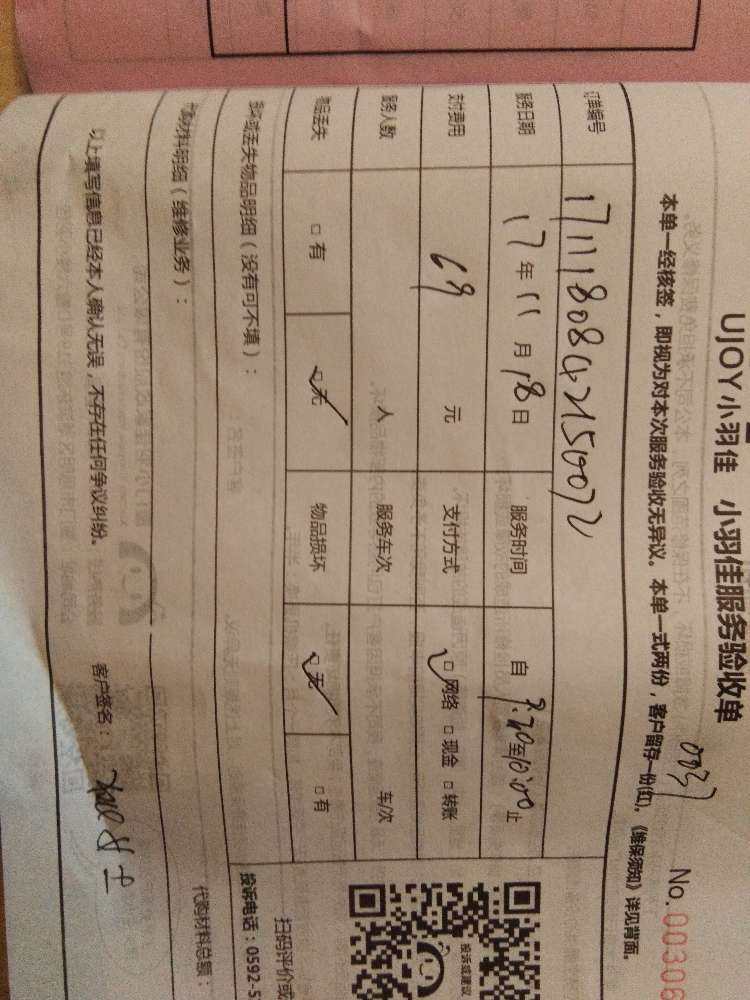 UJOY小羽佳 小羽佳服务验收单
0037
No. 00306
本单一经核签，即视为对本次服务验收无异议。本单一式两份，客户留存一份(红)。《维保须知》详见背面。
订单编号
服务日期 17年11月18日 服务时间 自 9:30至10:00止
支付费用 69 元 支付方式 □网络 □现金 □转账
服务人数 人 服务车次 车/次
物品丢失 □有 □无 物品损坏 □无 □有
损坏或丢失物品明细（没有可不填）：
代购材料明细（维修业务）：
代购材料总额：
以上填写信息已经本人确认无误，不存在任何争议纠纷。 客户签名：
投诉或建议
扫码评价或
投诉电话：0592-5